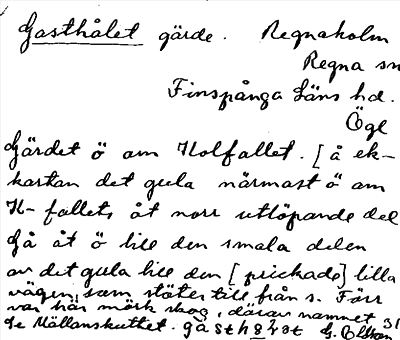 Gasthålet gärde. Regnaholm
Regna sn
Finspånga Läns hd.
Ögl
Gärdet ö om Kolfallet. [å ek-
kartan det gula närmast ö om
K-fallets åt norr utlöpande del
Gå åt ö till den smala delen
av det gula till den [prickade] lilla
vägen, som stöter till från s. Förr
var här mörk skog, därav namnet
Se Mällanskuttet. 31